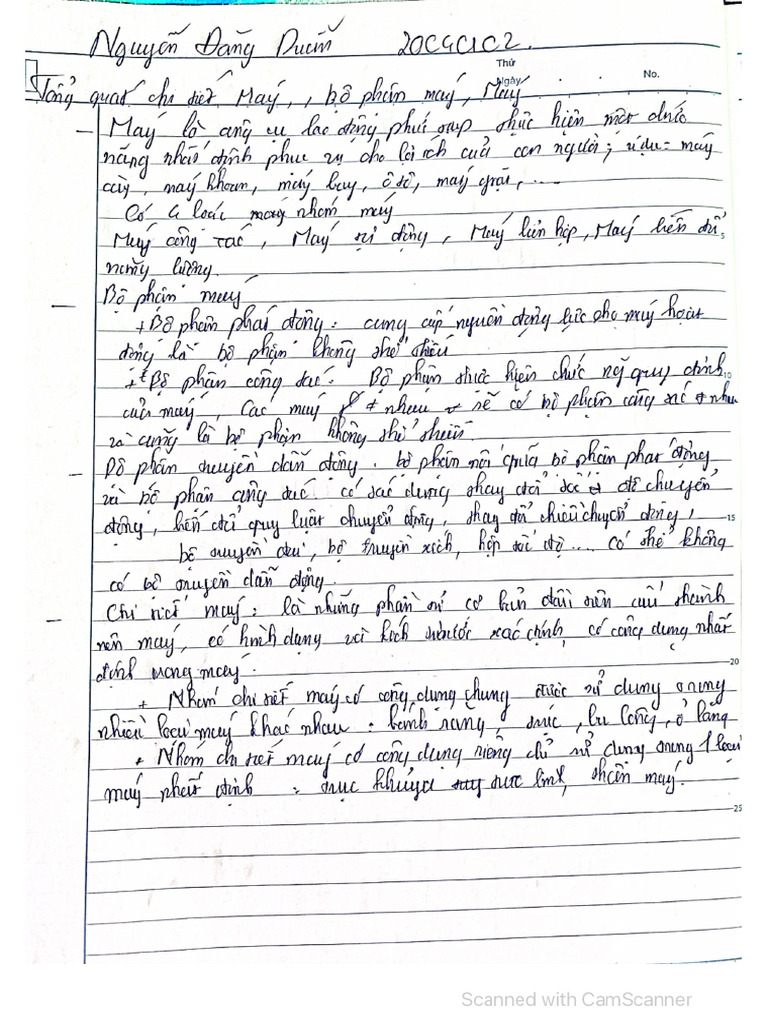 Nguyễn Đăng Duẩn 20C4C1C2.
Thứ
Ngày No.
Tổng quát chi tiết Máy, bộ phận máy, Máy
Máy là công cụ lao động phức tạp thực hiện một chức
năng nhất định phục vụ cho lợi ích của con người; ví dụ: máy
cày, máy khoan, máy bay, ô tô, máy gặt, ....
Có 4 loại máy nhóm máy
Máy công tác, Máy tự động, Máy liên hợp, Máy biến đổi
năng lượng.
Bộ phận máy
+ Bộ phận phát động: cung cấp nguồn động lực cho máy hoạt
động là bộ phận không thể thiếu
+ Bộ phận công tác: Bộ phận thực hiện chức năng quy định
của máy, Các máy ≠ nhau sẽ có bộ phận công tác ≠ nhau
và cũng là bộ phận không thể thiếu
Bộ phận truyền dẫn động. bộ phận nối giữa bộ phận phát động
và bộ phận công tác có tác dụng thay đổi tốc độ chuyển
động, biến đổi quy luật chuyển động, thay đổi chiều chuyển động,
bộ truyền đai, bộ truyền xích, hộp tốc độ .... có thể không
có bộ truyền dẫn động.
Chi tiết máy: là những phần tử cơ bản đầu tiên cấu thành
nên máy, có hình dạng và kích thước xác định, có công dụng nhất
định trong máy.
+ Nhóm chi tiết máy có công dụng chung được sử dụng trong
nhiều loại máy khác nhau: bánh răng, trục, bu lông, ổ lăng
+ Nhóm chi tiết máy có công dụng riêng chỉ sử dụng trong 1 loại
máy nhất định: trục khuỷu, thân máy.
10
15
20
25
Scanned with CamScanner